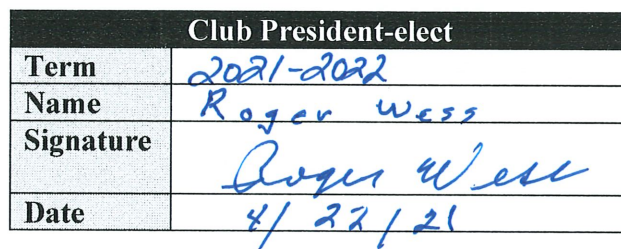 Club President-elect
Term 2021-2022
Name Roger Wess
Signature Roger Wess
Date 4/22/21